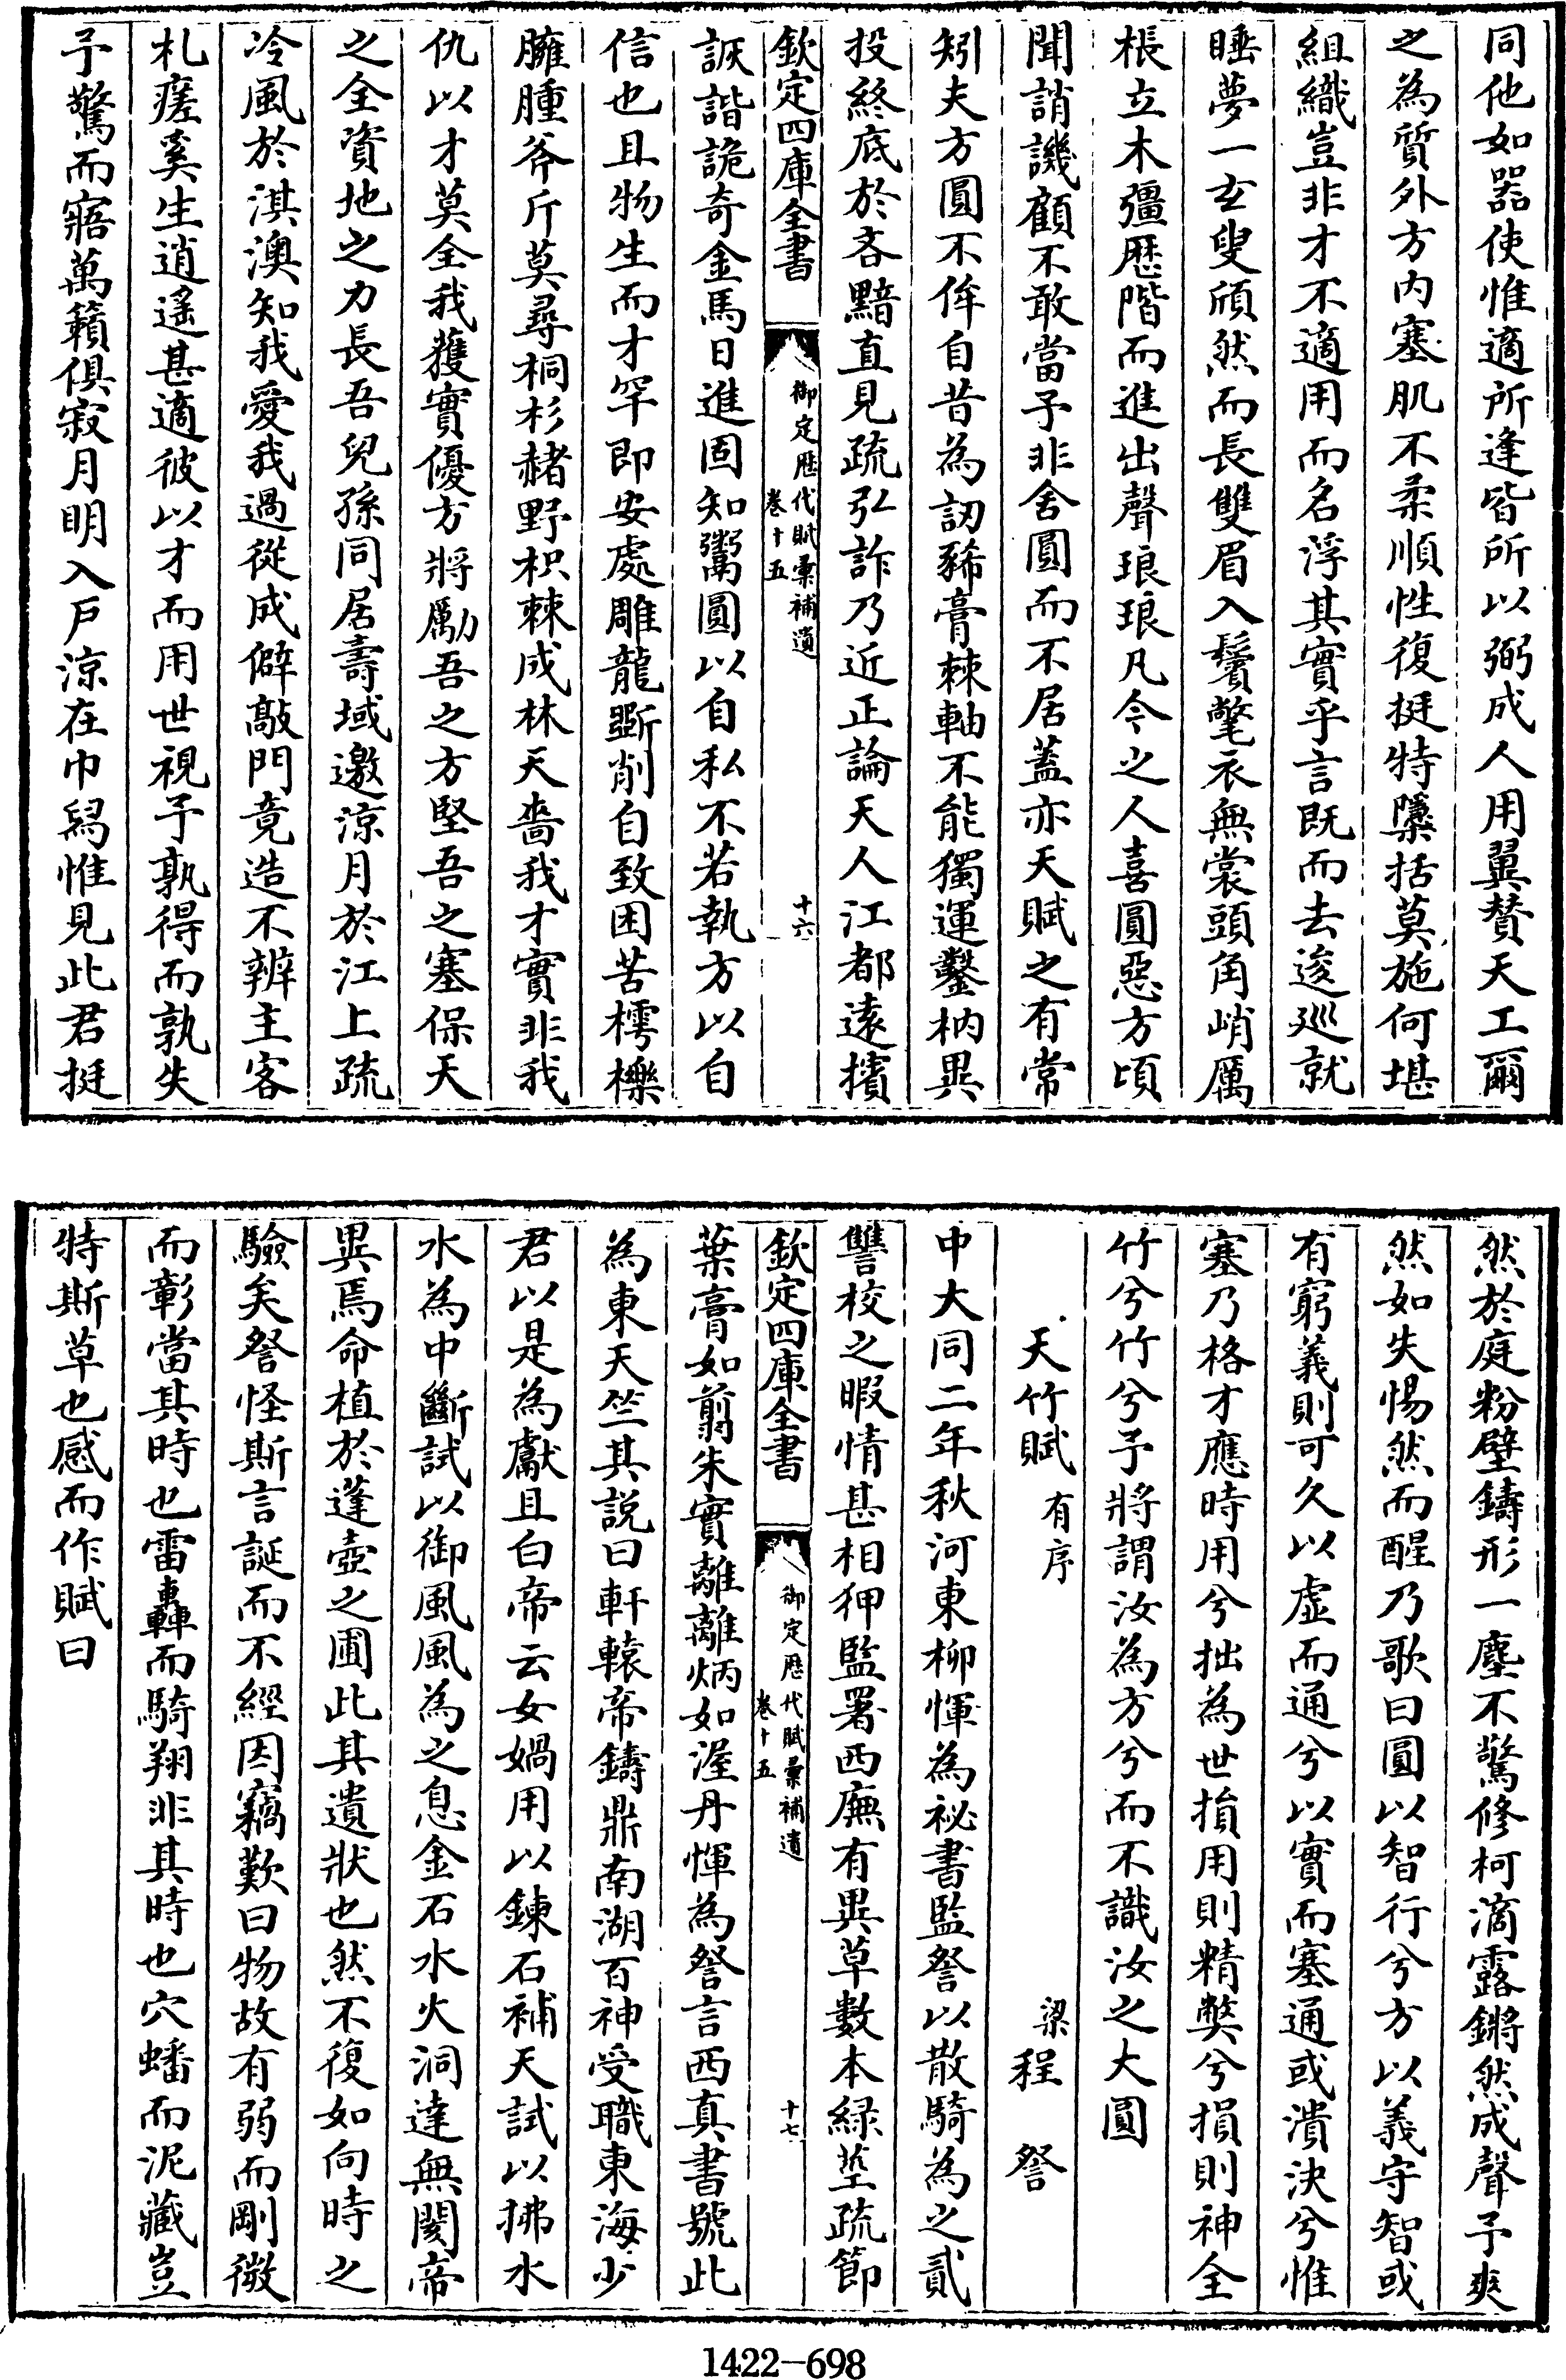 同他如器使惟適所逢皆所以弼成人用翼贊天工爾
之為質外方内塞肌不柔順性復挺特櫽括莫施何堪
組織豈非才不適用而名浮其實乎言既而去逡廵就
睡夢一玄叟頎然而長雙眉入鬢氅衣無裳頭角峭厲
棖立木彊歴階而進出聲琅琅凡今之人喜圓惡方頃
聞誚譏顧不敢當予非舍圓而不居蓋亦天賦之有常
矧夫方圓不侔自昔為訒豨膏棘軸不能獨運鑿枘異
投終底於吝黯直見疏弘詐乃近正論天人江都遠擯
欽定四庫全書
御定歴代賦彚補遺
卷十五
十六
詼諧詭奇金馬日進固知鬻圓以自私不若執方以自
信也且物生而才罕即安處雕龍斲削自致困苦樗櫟
臃腫斧斤莫尋桐杉赭野枳棘成林天嗇我才實非我
仇以才莫全我獲實優方將勵吾之方堅吾之塞保天
之全資地之力長吾兒孫同居壽域邀涼月於江上疏
冷風於淇澳知我愛我過從成僻敲門竟造不辨主客
札瘥奚生逍遙甚適彼以才而用世視予孰得而孰失
予驚而寤萬籟俱寂月明入戶涼在巾舄惟見此君挺
然於庭粉壁鑄形一塵不驚修柯滴露鏘然成聲予爽
然如失惕然而醒乃歌曰圓以智行兮方以義守智或
有窮義則可久以虛而通兮以實而塞通或潰決兮惟
塞乃格才應時用兮拙為世損用則精獘兮損則神全
竹兮竹兮予將謂汝為方兮而不識汝之大圓
天竹賦 有序 梁程詧
中大同二年秋河東柳惲為祕書監詧以散騎為之貳
讐校之暇情甚相狎監署西廡有異草數本緑莖疏節
欽定四庫全書
御定歴代賦彚補遺
卷十五
十七
葉膏如翦朱實離離炳如渥丹惲為詧言西真書號此
為東天竺其説曰軒轅帝鑄鼎南湖百神受職東海少
君以是為獻且白帝云女媧用以鍊石補天試以拂水
水為中斷試以御風風為之息金石水火洞達無閡帝
異焉命植於蓬壺之圃此其遺狀也然不復如向時之
驗矣詧怪斯言誕而不經因竊歎曰物故有弱而剛微
而彰當其時也雷轟而騎翔非其時也穴蟠而泥藏豈
特斯草也感而作賦曰
1422-698